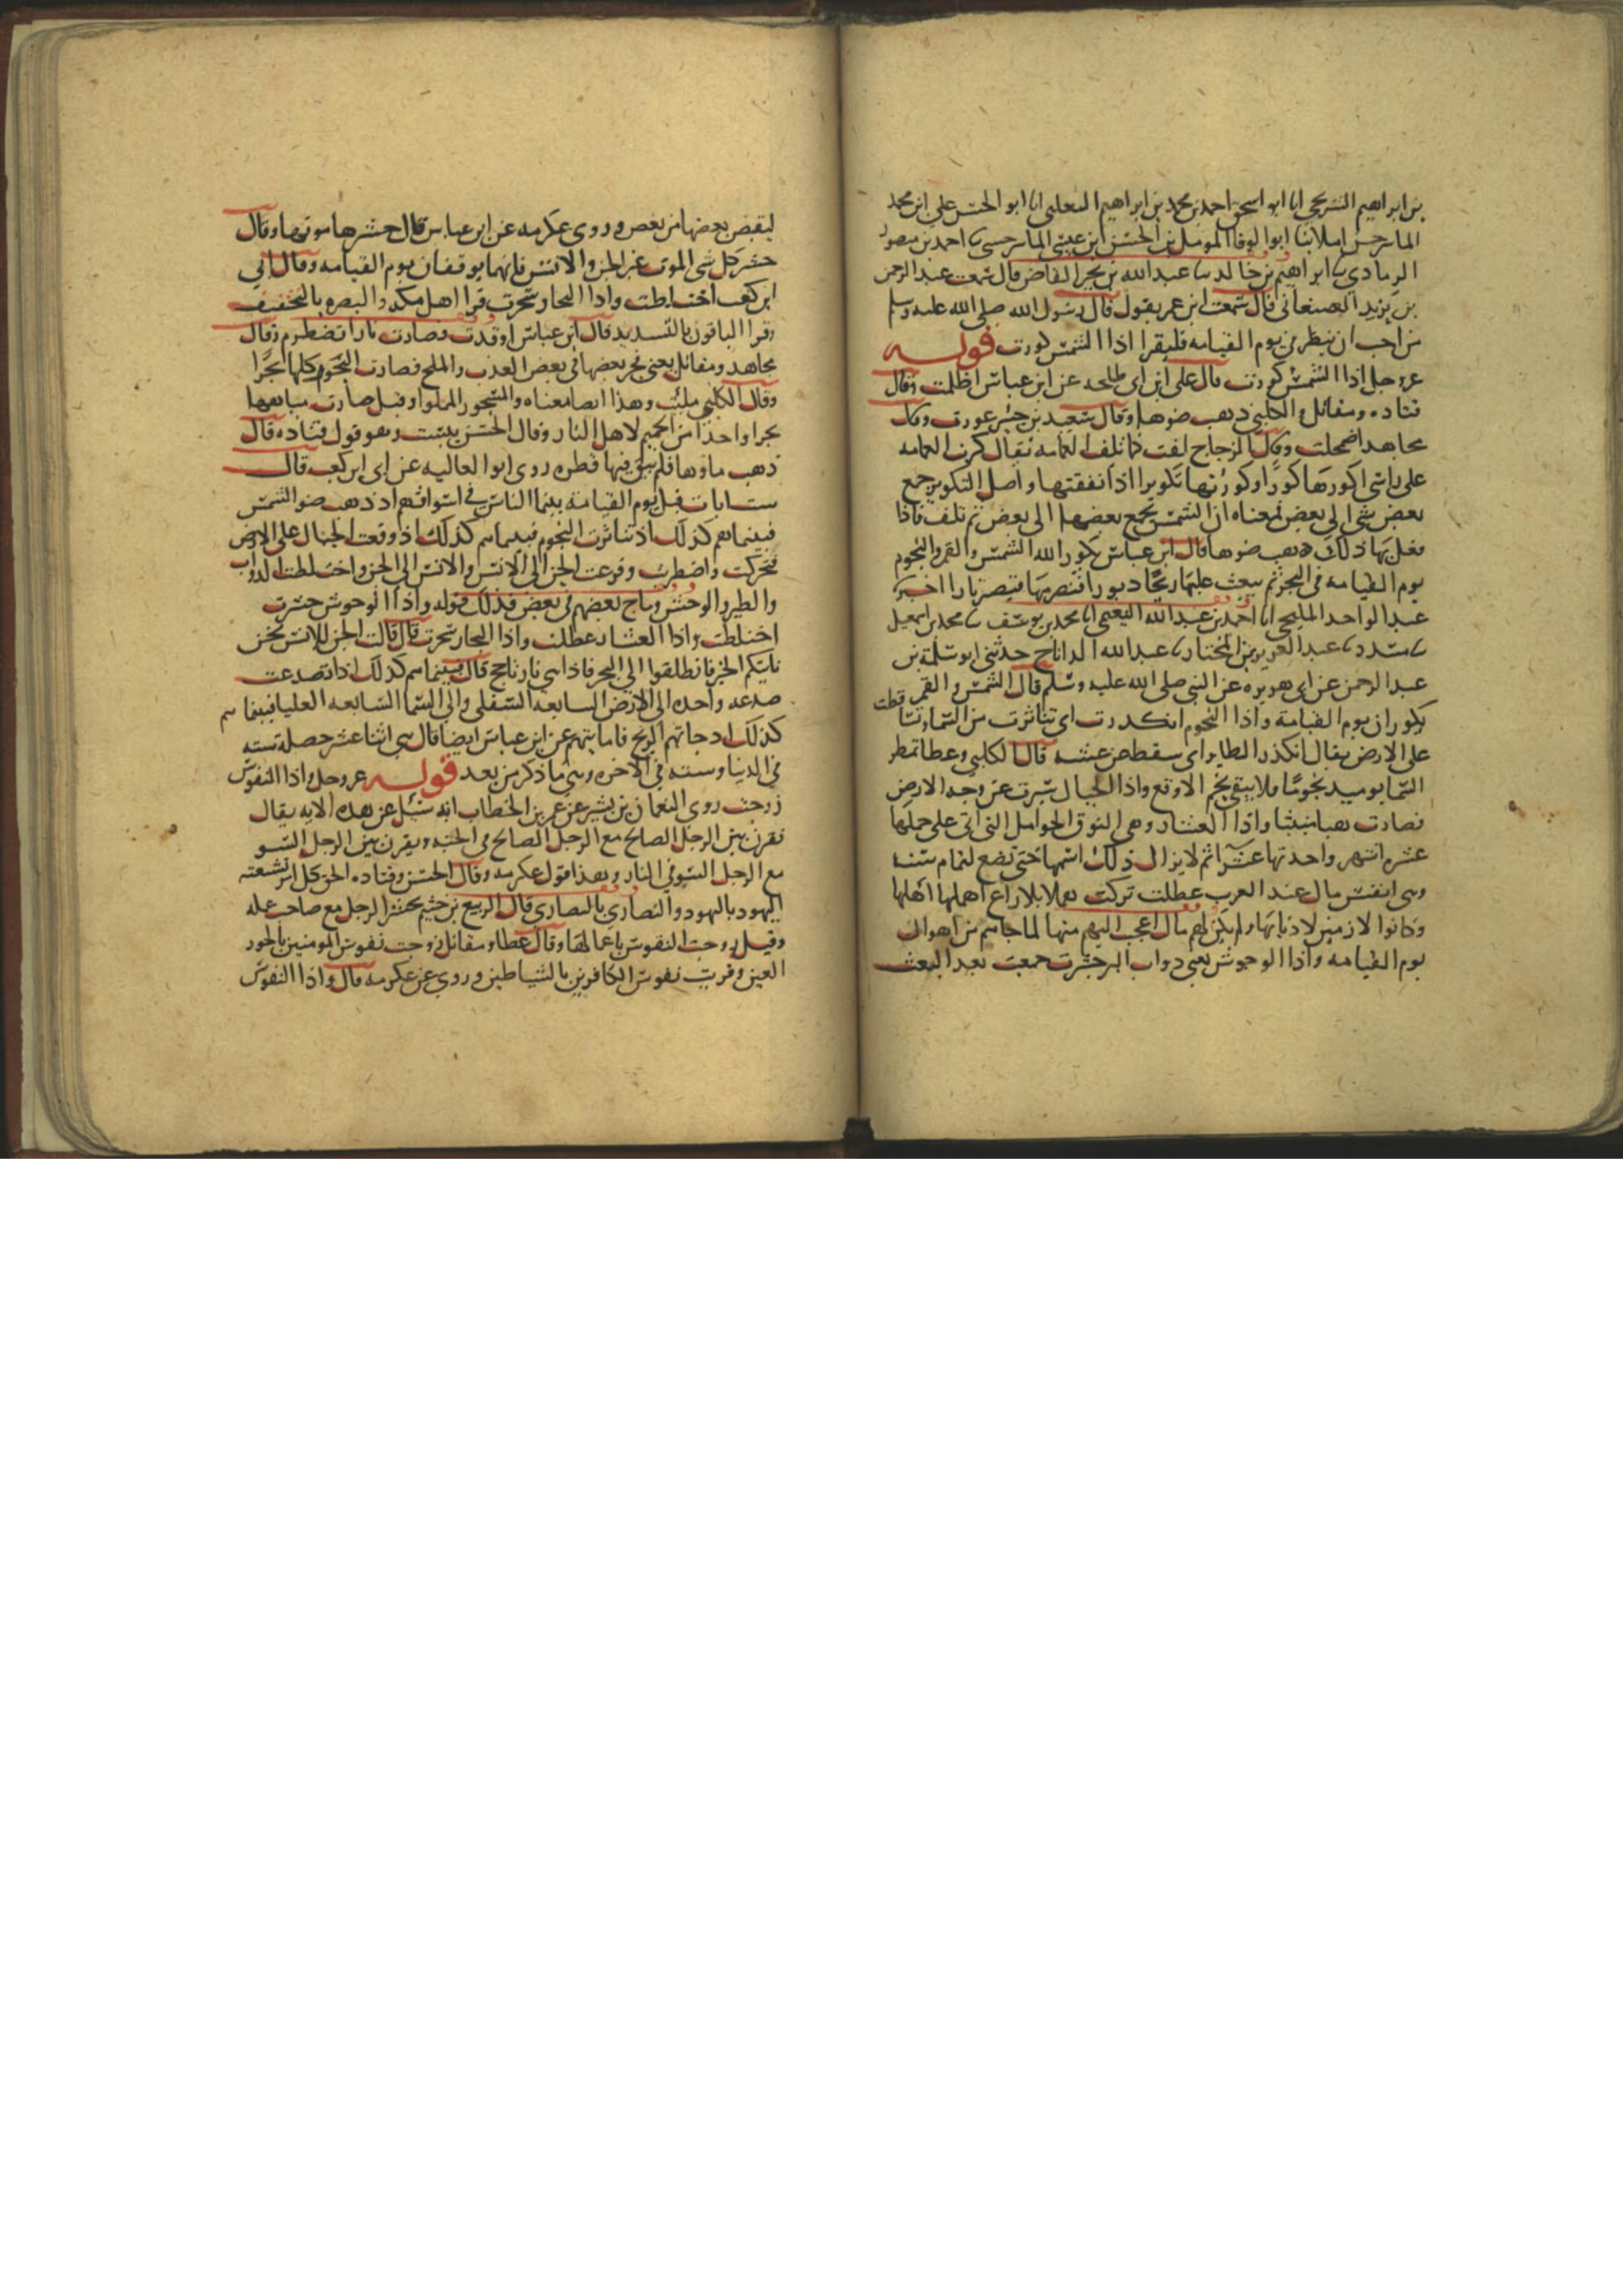 بن ابراهيم الشريحي انا ابو اسحق احمد بن محمد بن ابراهيم الثعلبي انا ابو الحسن علي ابن محمد
الماسرجسي املا ثنا ابوا الوفا المومل بن الحسن ابن عيسى الماسرجسي ثنا احمد بن منصور
الرمادي ثنا ابراهيم بن خالد ثنا عبد الله بن بحير القاص قال سمعت عبد الرحمن
بن يزيد الصنعاني قال سمعت ابن عمر يقول قال رسول الله صلى الله عليه وسلم
من احب ان ينظر في يوم القيامه فليقرا اذا الشمس كورت قوله
عز وجل اذا الشمس كورت قال علي ابن ابي طلحه عن ابن عباس اظلمت وقال
قتاده ومقاتل والكلبي ذهب ضوها وقال سعيد بن جبير عورت وقال
مجاهد اضمحلت وقال الزجاج لفت كما تلف العمامه يقال كرت العمامه
على راسي اكورها كورا وكورتها تكويرا اذا لففتها واصل التكوير جمع
بعض شي الى بعض فمعناه ان الشمس يجمع بعضها الى بعض ثم تلف فاذا
فعل بها ذلك ذهب ضوها قال ابن عباس يكور الله الشمس والقمر والنجوم
يوم القيامه في البحر ثم يبعث عليها ريحا دبورا فتضربها فتصير نارا اخبرنا
عبد الواحد المليحي انا احمد بن عبد الله النعيمي انا محمد بن يوسف ثنا محمد بن اسمعيل
ثنا مسدد ثنا عبد العزيز بن المختار ثنا عبد الله الداناج حدثني ابو سلمة بن
عبد الرحمن عن ابي هريره عن النبي صلى الله عليه وسلم قال الشمس والقمر
يكوران يوم القيامة واذا النجوم انكدرت اي تناثرت من السما وتساقطت
على الارض يقال انكدر الطاير اي سقط عن عشه قال الكلبي وعطا تمطر
السما يوميد نجوما فلا يبقى نجم الا وقع واذا الجبال سيرت عن وجه الارض
فصارت هبا منبثا واذا العشار وهي النوق الحوامل التي اتى على حملها
عشره اشهر واحدتها عشرا ثم لا يزال ذلك اسمها حتى تضع لتمام سنه
وهي انفس مال عند العرب عطلت تركت هملا بلا راع اهملها اهلها
وكانوا لازمين لاذنابها ولم يكن لهم مال اعجب اليهم منها لما جاهم من اهوال
يوم القيامه واذا الوحوش يعني دواب البر حشرت جمعت بعد البعث
ليقبض بعضها من بعض وروى عكرمه عن ابن عباس قال حشرها موتها وقال
حشر كل شي الموت غير الجن والانس فانهما يوقفان يوم القيامه وقال ابي
ابن كعب اختلطت واذا البحار سجرت قرا اهل مكه والبصره بالتخفيف
وقرا الباقون بالتشديد قال ابن عباس اوقدت فصارت نارا تضطرم وقال
مجاهد ومقاتل يعني فجر بعضها في بعض العذب والملح فصارت البحور كلها بحرا
وقال الكلبي ملئت وهذا ايضا معناه والمسجور المملوا وقيل صارت مياهها
بحرا واحدا من الحميم لاهل النار وقال الحسن يبست وهو قول قتاده قال
ذهب ماوها فلم يبق فيها قطره روى ابوا العاليه عن ابي ابن كعب قال
ست ايات قبل يوم القيامة بينما الناس في اسواقهم اذ ذهب ضو الشمس
فبينما هم كذلك اذ تناثرت النجوم فبينما هم كذلك اذ وقعت الجبال على الارض
فتحركت واضطربت وفزعت الجن الى الانس والانس الى الجن واختلطت الدواب
والطير والوحش وماج بعضهم في بعض فذلك قوله واذا الوحوش حشرت
اختلطت واذا العشار عطلت واذا البحار سجرت قال قالت الجن للانس نحن
ناتيكم الخبر فانطلقوا الى البحر فاذا هي نار تاجج قال فبينما هم كذلك اذا تصدعت
صدعه واحده الى الارض السابعه السفلى والى السما السابعه العليا فبينما هم
كذلك اذ جاتهم الريح فاماتتهم عن ابن عباس ايضا قال هي اثنا عشر خصلة سته
في الدنيا وسته في الاخره وهي ما ذكر من بعد قوله عز وجل واذا النفوس
زوجت روى النعمان بن بشير عن عمر بن الخطاب انه سئل عن هذه الايه يقال
نقرن بين الرجل الصالح مع الرجل الصالح في الجنه ويقرن بين الرجل السو
مع الرجل السو في النار وهذا قول عكرمه وقال الحسن وقتاده الحق كل امر بشيعته
اليهود باليهود والنصاري بالنصاري قال الربيع بن خثيم يحشر الرجل مع صاحب عمله
وقيل زوجت النفوس باعمالها وقال عطا ومقاتل زوجت نفوس المومنين بالحور
العين وقرنت نفوس الكافرين بالشياطين وروي عن عكرمه قال واذا النفوس